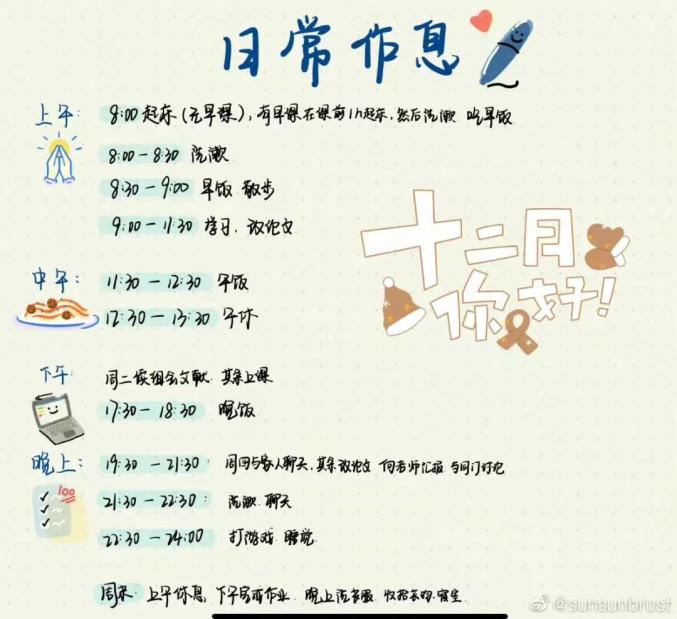 日常作息
上午：
8:00 起床（无早课），有早课在课前1h起床，然后洗漱 吃早饭
8:00 - 8:30 洗漱
8:30 - 9:00 早饭 散步
9:00 - 11:30 学习，改论文
十二月
你好！
中午：
11:30 - 12:30 午饭
12:30 - 13:30 午休
下午：
周二读组会文献 其余上课
17:30 - 18:30 晚饭
晚上：
19:30 - 21:30：周四与家人聊天，其余改论文 向老师汇报 与同门讨论
100
21:30 - 22:30：洗漱 聊天
22:30 - 24:00 打游戏 睡觉
周末：上午休息，下午写作业 晚上洗衣服 收拾衣物
@sunsunbrust